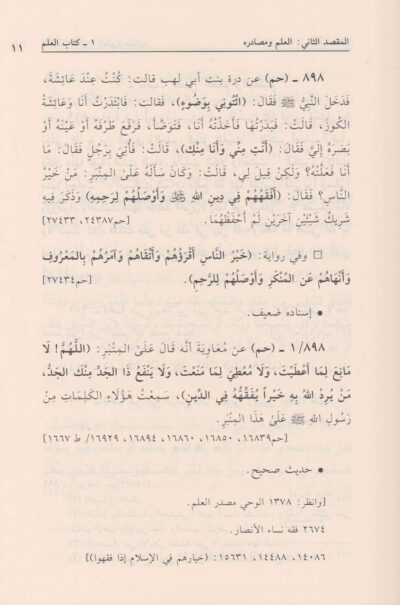 المقصد الثاني: العلم ومصادره
١ ـ كتاب العلم
١١
٨٩٨ ـ (حم) عن درة بنت أبي لهب قالت: كُنْتُ عِنْدَ عَائِشَةَ،
فَدَخَلَ النَّبِيُّ ﷺ فَقَالَ: (ائْتُونِي بِوَضُوءٍ)، فقالت: فَابْتَدَرْتُ أَنَا وَعَائِشَةُ
الْكُوزَ، قَالَتْ: فَبَدَرْتُهَا فَأَخَذْتُهُ أَنَا، فَتَوَضَّأَ، فَرَفَعَ طَرْفَهُ أَوْ عَيْنَهُ أَوْ
بَصَرَهُ إِلَيَّ فَقَالَ: (أَنْتِ مِنِّي وَأَنَا مِنْكِ)، قَالَتْ: فَأُتِيَ بِرَجُلٍ فَقَالَ: مَا
أَنَا فَعَلْتُهُ؟ وَلَكِنْ قِيلَ لِي، قَالَتْ: وَكَانَ سَأَلَهُ عَلَى الْمِنْبَرِ: مَنْ خَيْرُ
النَّاسِ؟ فَقَالَ: (أَفْقَهُهُمْ فِي دِينِ اللهِ ﷿ وَأَوْصَلُهُمْ لِرَحِمِهِ) وَذَكَرَ فِيهِ
شَرِيكٌ شَيْئَيْنِ آخَرَيْنِ لَمْ أَحْفَظْهُمَا.
[حم٢٤٣٨٧، ٢٧٤٣٣]
□ وفي رواية: (خَيْرُ النَّاسِ أَقْرَؤُهُمْ وَأَتْقَاهُمْ وَآمَرُهُمْ بِالمَعْرُوفِ
وَأَنْهَاهُمْ عَنِ المُنْكَرِ وَأَوْصَلُهُمْ لِلرَّحِمِ).
[حم٢٧٤٣٤]
• إسناده ضعيف.
١/٨٩٨ ـ (حم) عن مُعَاوِيَةَ أنَّه قَالَ عَلَى الْمِنْبَرِ: (اللَّهُمَّ! لَا
مَانِعَ لِمَا أَعْطَيْتَ، وَلَا مُعْطِيَ لِمَا مَنَعْتَ، وَلَا يَنْفَعُ ذَا الجَدِّ مِنْكَ الجَدُّ،
مَنْ يُرِدِ اللهُ بِهِ خَيْراً يُفَقِّهْهُ فِي الدِّينِ)، سَمِعْتُ هَؤُلَاءِ الْكَلِمَاتِ مِنْ
رَسُولِ اللهِ ﷺ عَلَى هَذَا الْمِنْبَرِ.
[حم١٦٨٣٩، ١٦٨٥٠، ١٦٨٦٠، ١٦٨٩٤، ١٦٩٢٩/ ط ١٦٦٧]
• حديث صحيح.
[وانظر: ١٣٧٨ الوحي مصدر العلم.
٢٦٧٤ فقه نساء الأنصار.
١٤٠٨٦، ١٤٤٨٨، ١٥٦٣١: (خيارهم في الإسلام إذا فقهوا)]